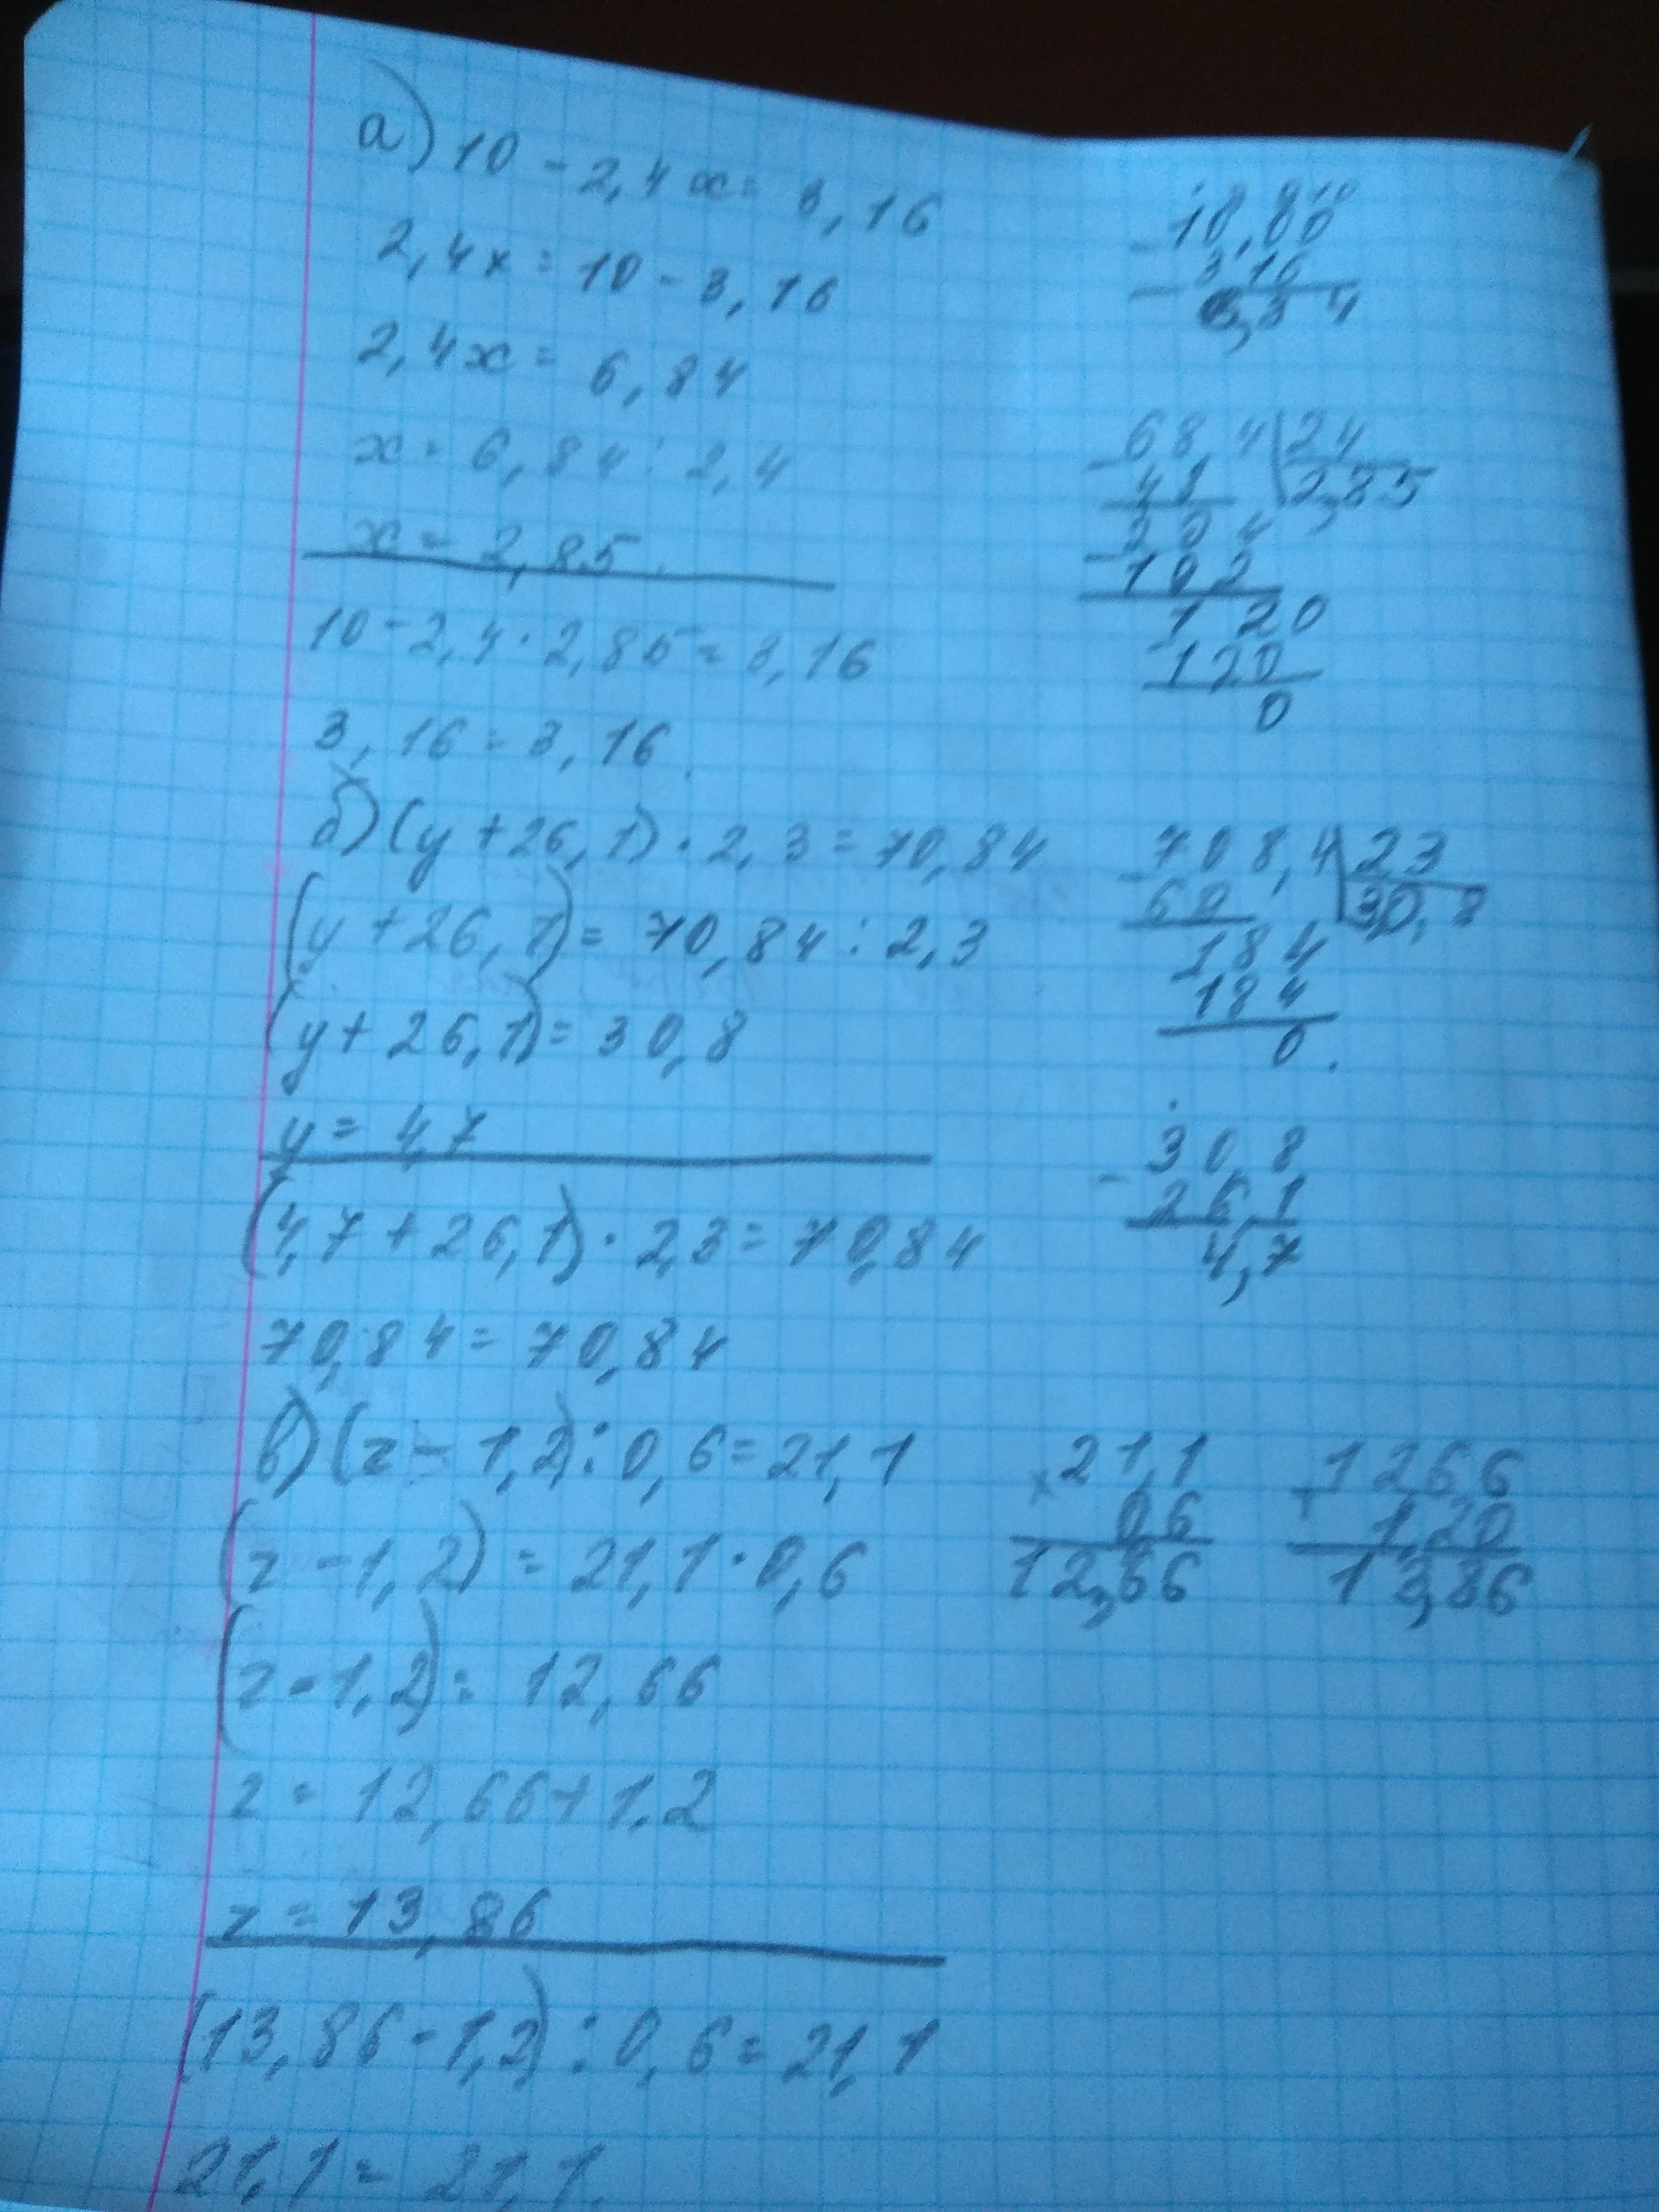 а) 10 - 2,4x = 3,16
2,4x = 10 - 3,16
2,4x = 6,84
x = 6,84 : 2,4
x = 2,85.
10 - 2,4 · 2,85 = 3,16
3,16 = 3,16.
б) (y + 26,1) · 2,3 = 70,84
(y + 26,1) = 70,84 : 2,3
(y + 26,1) = 30,8
y = 4,7
(4,7 + 26,1) · 2,3 = 70,84
70,84 = 70,84
в) (z - 1,2) : 0,6 = 21,1
(z - 1,2) = 21,1 · 0,6
(z - 1,2) = 12,66
z = 12,66 + 1,2
z = 13,86
(13,86 - 1,2) : 0,6 = 21,1
21,1 = 21,1.
3,16
68,4 24
2,85
120
120
0
708,4 23
184
184
0.
- 30,8
26,1
4,7
× 21,1
06
12,66
+ 1266
1,20
13,86